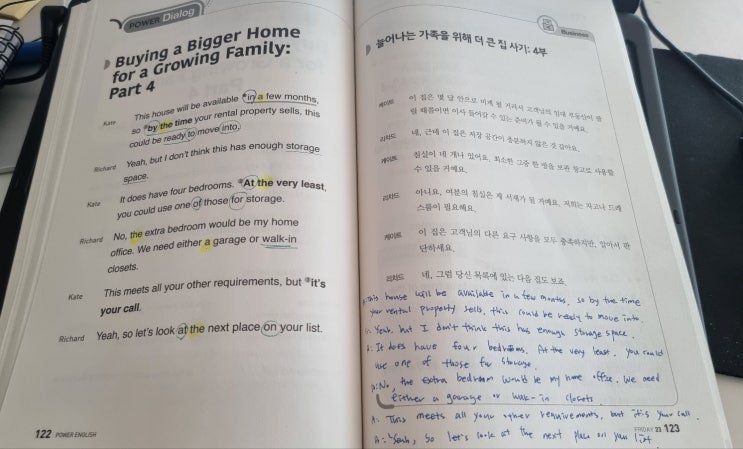 POWER Dialog
Buying a Bigger Home
for a Growing Family:
Part 4
Kate This house will be available *in a few months,
so *by the time your rental property sells, this
could be ready to move into.
Richard Yeah, but I don't think this has enough storage
space.
Kate It does have four bedrooms. *At the very least,
you could use one of those for storage.
Richard No, the extra bedroom would be my home
office. We need either a garage or walk-in
closets.
Kate This meets all your other requirements, but *it's
your call.
Richard Yeah, so let's look at the next place on your list.
122 POWER ENGLISH
Business
늘어나는 가족을 위해 더 큰 집 사기: 4부
케이트 이 집은 몇 달 안으로 비게 될 거라서 고객님의 임대 부동산이 팔
릴 때쯤이면 이사 들어갈 수 있는 준비가 될 수 있을 거예요.
리차드 네, 근데 이 집은 저장 공간이 충분하지 않은 것 같아요.
케이트 침실이 네 개나 있어요. 최소한 그중 한 방을 보관 창고로 사용할
수 있을 거예요.
리차드 아니요, 여분의 침실은 제 서재가 될 거예요. 저희는 차고나 드레
스룸이 필요해요.
케이트 이 집은 고객님의 다른 요구 사항을 모두 충족하지만, 알아서 판
단하세요.
리차드 네, 그럼 당신 목록에 있는 다음 집도 보죠.
This house will be available in a few months, so by the time
your rental property sells, this could be ready to move into.
Yeah, but I don't think this has enough storage space.
It does have four bedrooms. At the very least, you could
use one of those for storage.
No, the extra bedroom would be my home office. We need
either a garage or walk-in closets.
This meets all your other requirements, but it's your call.
Yeah, so let's look at the next place on your list
FRIDAY 23 123